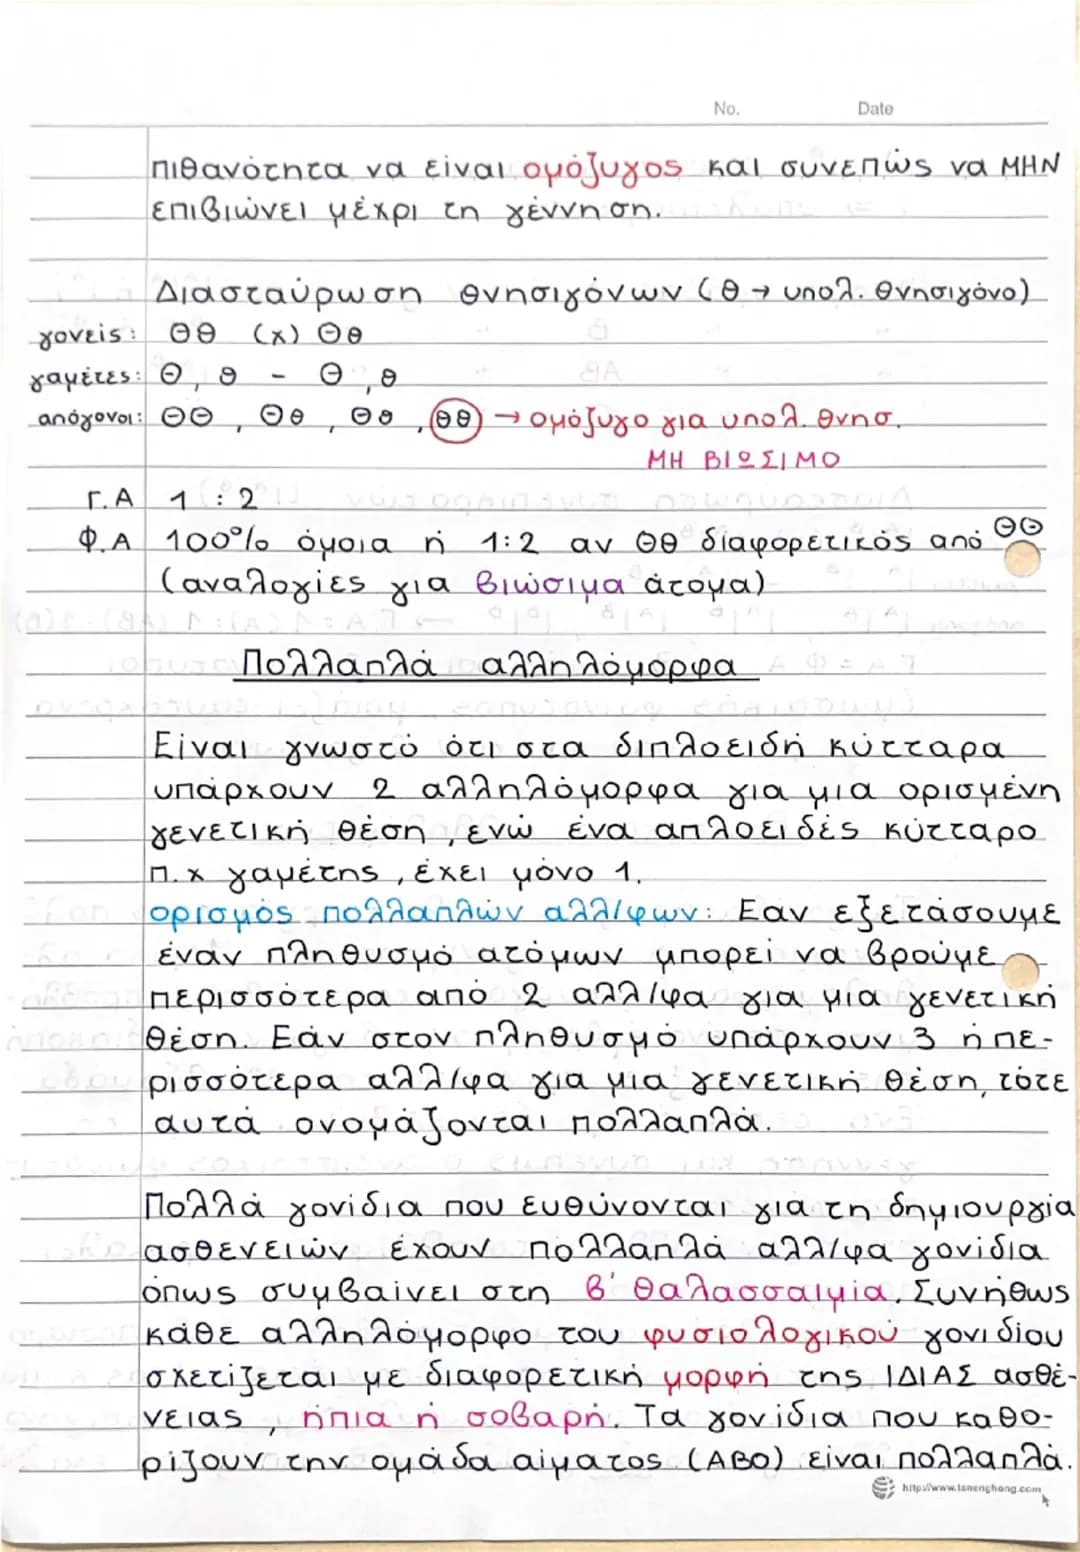 No. Date
πιθανότητα να είναι ομόζυγος και συνεπώς να ΜΗΝ
επιβιώνει μέχρι τη γέννηση.
Διασταύρωση θνησιγόνων (θ → υπολ. θνησιγόνο)
γονείς: Θθ (x) Θθ
γαμέτες: Θ, θ - Θ, θ
απόγονοι: ΘΘ, Θθ, Θθ, θθ → ομόζυγο για υπολ. θνησ.
ΜΗ ΒΙΩΣΙΜΟ
Γ.Α 1 : 2
Φ.Α 100% όμοια ή 1:2 αν Θθ διαφορετικός από ΘΘ
(αναλογίες για βιώσιμα άτομα)
Πολλαπλά αλληλόμορφα
Είναι γνωστό ότι στα διπλοειδή κύτταρα
υπάρχουν 2 αλληλόμορφα για μια ορισμένη
γενετική θέση, ενώ ένα απλοειδές κύτταρο
π.χ γαμέτης, έχει μόνο 1.
ορισμός πολλαπλών αλλ/φων: Εαν εξετάσουμε
έναν πληθυσμό ατόμων μπορεί να βρούμε
περισσότερα από 2 αλλ/φα για μια γενετική
θέση. Εάν στον πληθυσμό υπάρχουν 3 ή πε-
ρισσότερα αλλ/φα για μια γενετική θέση, τότε
αυτά ονομάζονται πολλαπλά.
Πολλά γονίδια που ευθύνονται για τη δημιουργία
ασθενειών έχουν πολλαπλά αλλ/φα γονίδια
όπως συμβαίνει στη β' θαλασσαιμία. Συνήθως
κάθε αλληλόμορφο του φυσιολογικού γονιδίου
σχετίζεται με διαφορετική μορφή της ΙΔΙΑΣ ασθέ-
νειας, ήπια ή σοβαρή. Τα γονίδια που καθο-
ρίζουν την ομάδα αίματος (ΑΒΟ) είναι πολλαπλά.
http://www.lanenghong.com